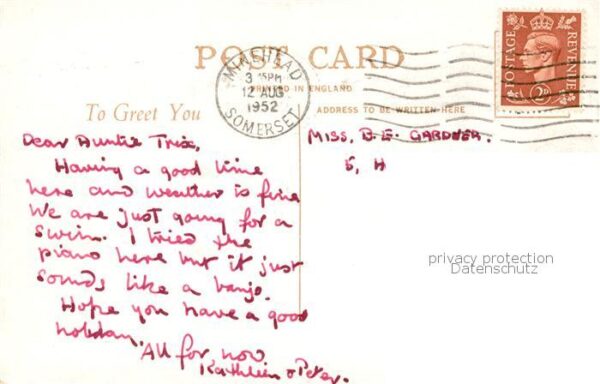 POST CARD
PRINTED IN ENGLAND
To Greet You
ADDRESS TO BE WRITTEN HERE
MINEHEAD
3 15PM
12 AUG
1952
SOMERSET
POSTAGE
REVENUE
2D
Dear Auntie Trix,
Having a good time
here and weather is fine
We are just going for a
swim. I tried the
piano here but it just
sounds like a banjo.
Hope you have a good
holiday.
All for now
Kathleen & Peter.
MISS. B. E. GARDNER.
5, H
privacy protection
Datenschutz